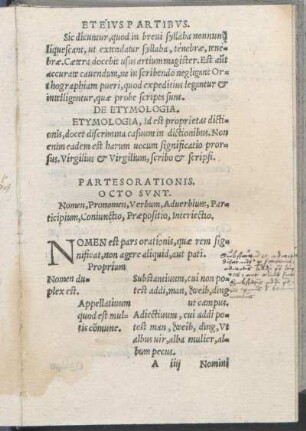 ET EIVS PARTIBVS.
Sic dicuntur, quod in breui syllaba nonnunq̃
liquescant, ut extendatur syllaba, tenebræ, tene-
bræ. Cætera docebit usus artium magister. Est aũt
accurate cauendum, ne in scribendo negligant Or-
thographiam pueri, quod expeditius leguntur &
intelliguntur, quæ probe scripta sunt.
DE ETYMOLOGIA.
ETYMOLOGIA, id est proprietas dicti-
onis, docet discrimina casuum in dictionibus. Non
enim eadem est harum uocum significatio pror-
sus. Virgilius & Virgilium, scribo & scripsi.
PARTES ORATIONIS,
OCTO SVNT.
Nomen, Pronomen, Verbum, Aduerbium, Par-
ticipium, Coniunctio, Præpositio, Interiectio.
NOMEN est pars orationis, quæ rem sig-
nificat, non agere aliquid, aut pati.
Proprium
Nomen du-
plex est.
Appellatiuum
quod est mul-
tis cōmune.
Substantiuum, cui non po-
test addi, man, weib, ding
ut campus.
Adiectiuum, cui addi po-
test man, weib, ding, Vt
albus uir, alba mulier, al-
bum pecus.
A iiij Nomini